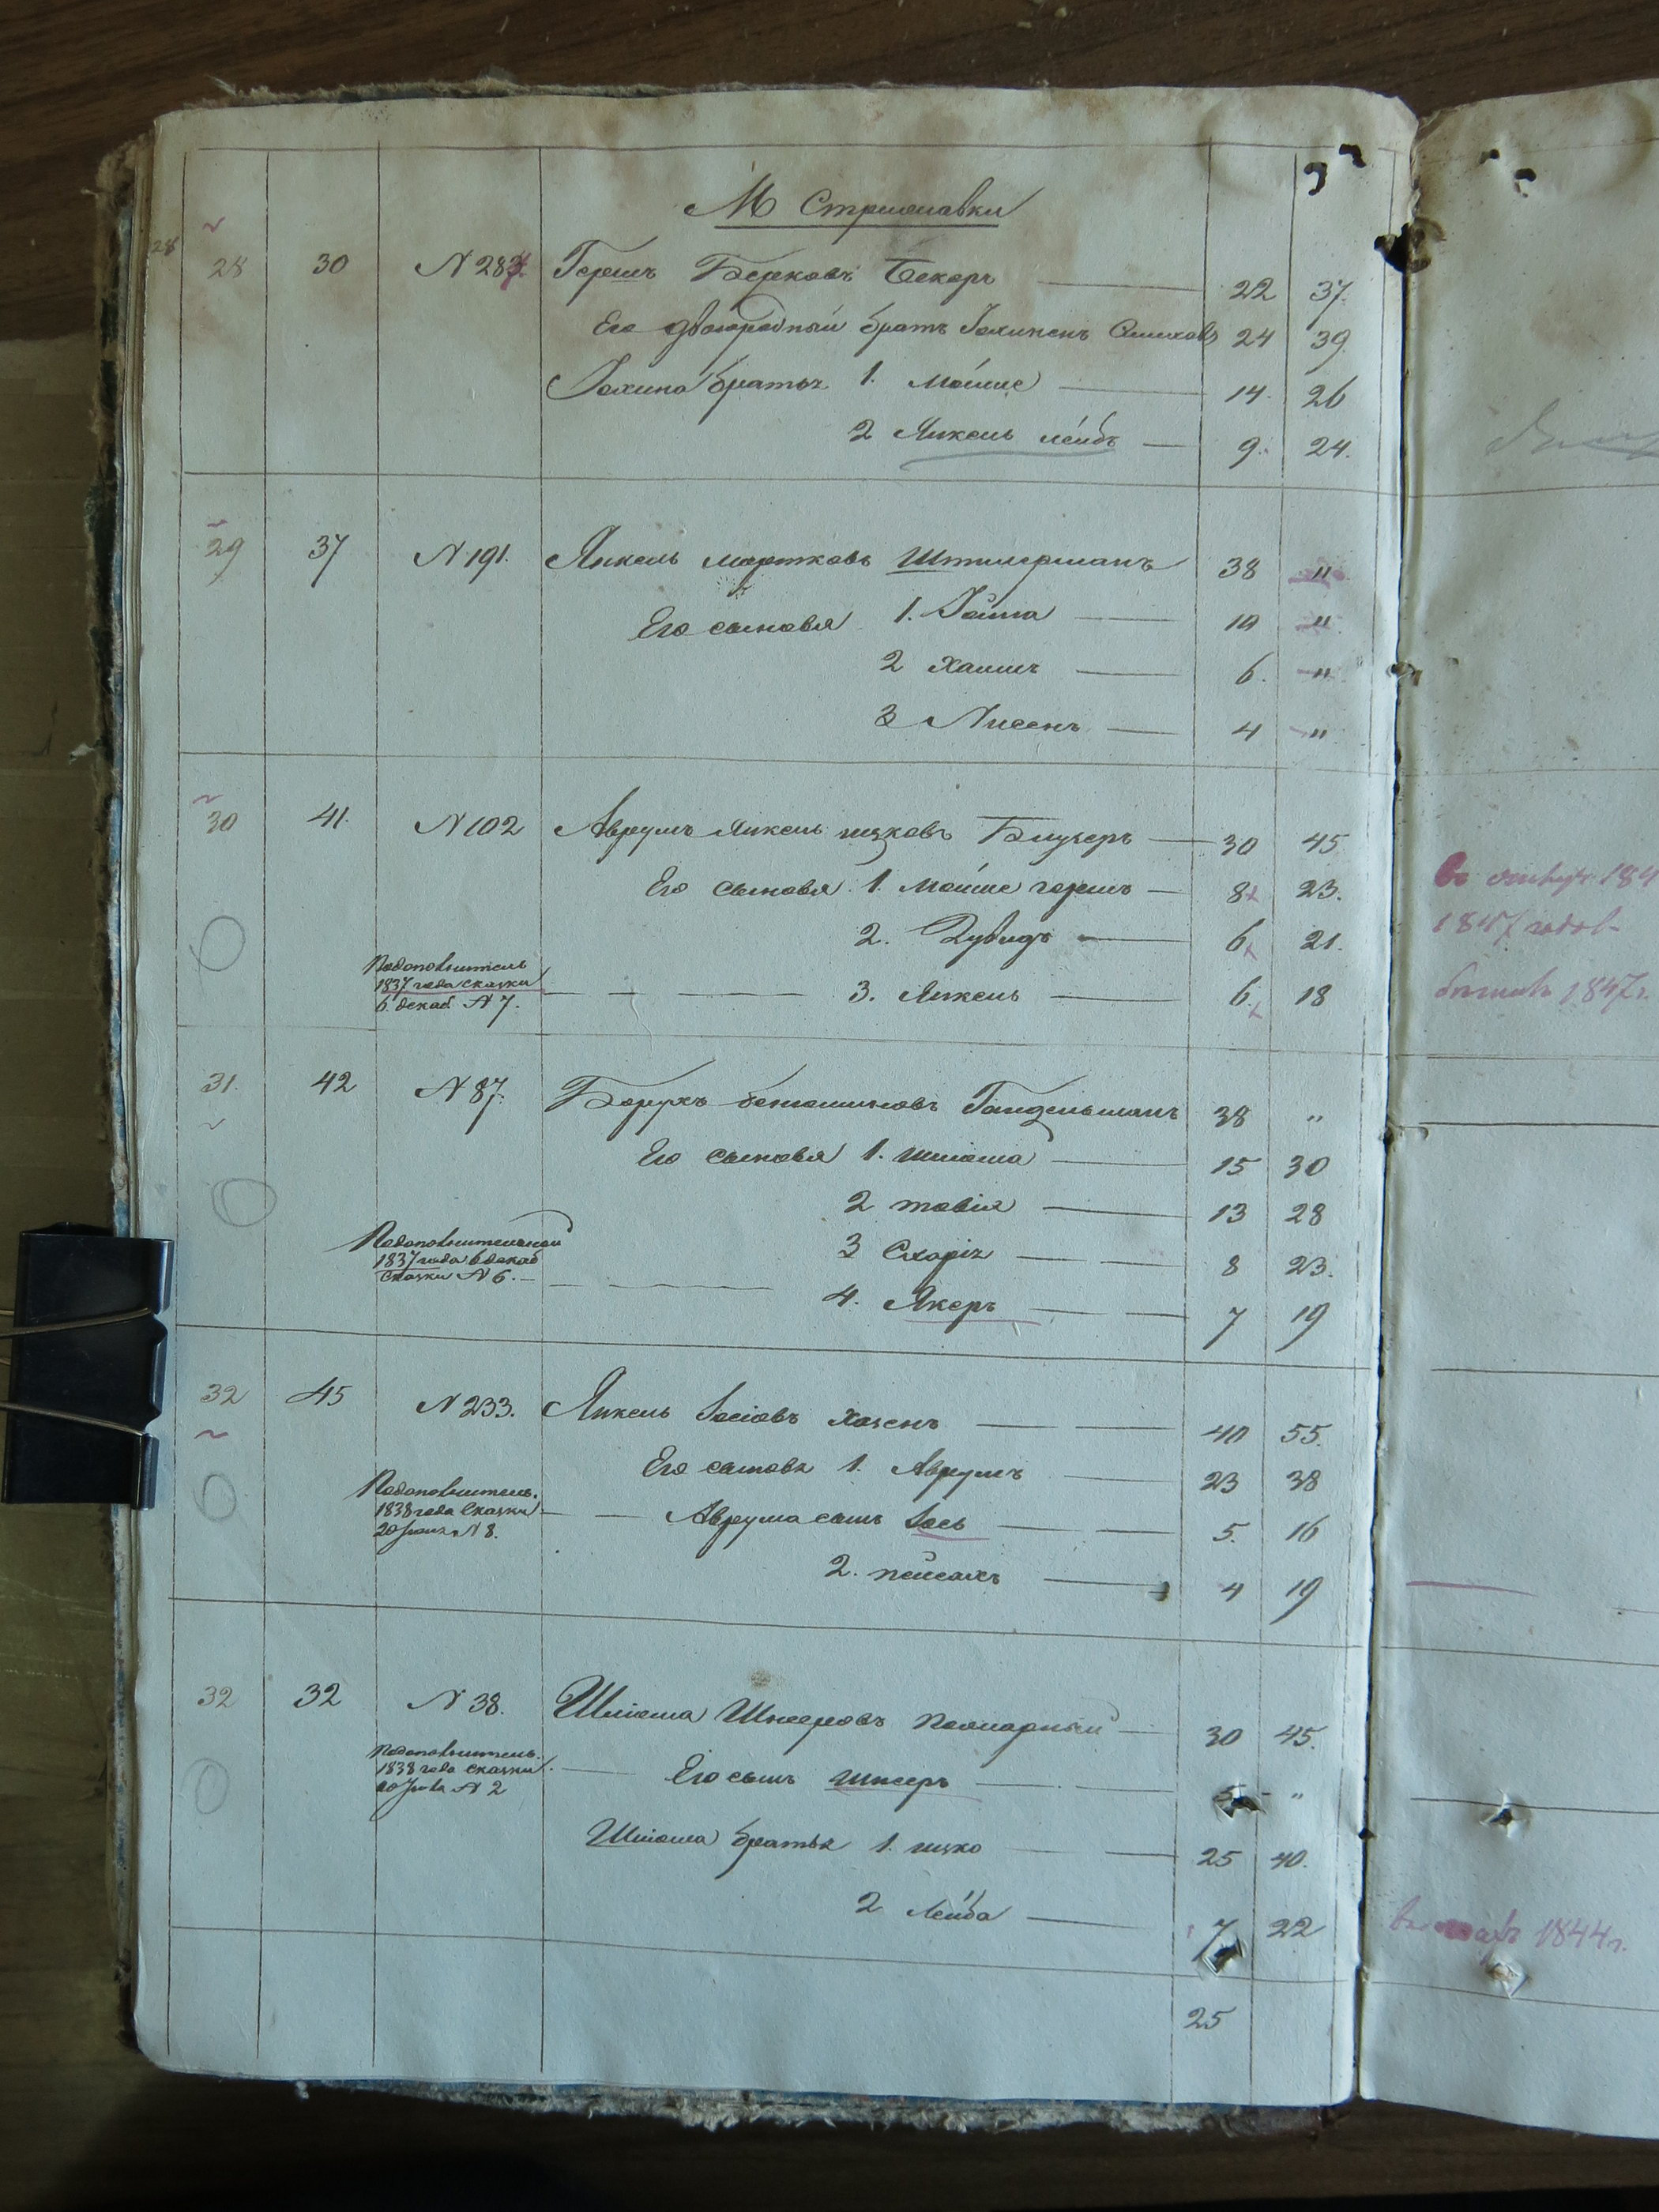 М Стрижавки
28 28 30 N 287. Гершъ Берковъ Бекеръ 22 37.
Его двоюродный братъ 24 39.
братья 1. Мойше 14. 26
2 Янкель лейбъ 9. 24.
29 37 N 191. Янкель мортковъ Штилерманъ 38 "
Его сыновья 1. 10 "
2 Хаимъ 6. "
3 Нисенъ 4 "
30 41. N 102 Аврумъ Янкель ицковъ 30 45
Его сыновья 1. Мойше гершъ 8 23.
2. Дувидъ 6 21.
Подополнитель
1837 года сказки
6 декаб N 7. 3. Янкель 6. 18
31. 42 N 87. Борухъ бенюминовъ Гандельманъ 38 "
Его сыновья 1. шлiома 15 30
2 товiя 13 28
3 8 23.
Подополнительной
1837 года 6 декаб
сказки N 6. 4. Якеръ 7 19
32 45 N 233. Янкель Iосiовъ Хазенъ 40 55.
Его сыновья 1. Аврумъ 23 38
Подополнитель.
1838 года сказки
20 N 8. Аврума сынъ Iось 5. 16
2. пейсахъ 4 19
32 32 N 38. Шлiома Шнееровъ 30 45.
Подополнитель.
1838 года сказки
N 2 Его сынъ шнееръ 5 "
Шлiома братья 1. ицко 25 40.
2 Лейба 7 22
25
184
1847 годов
1847 г.
1844 г.